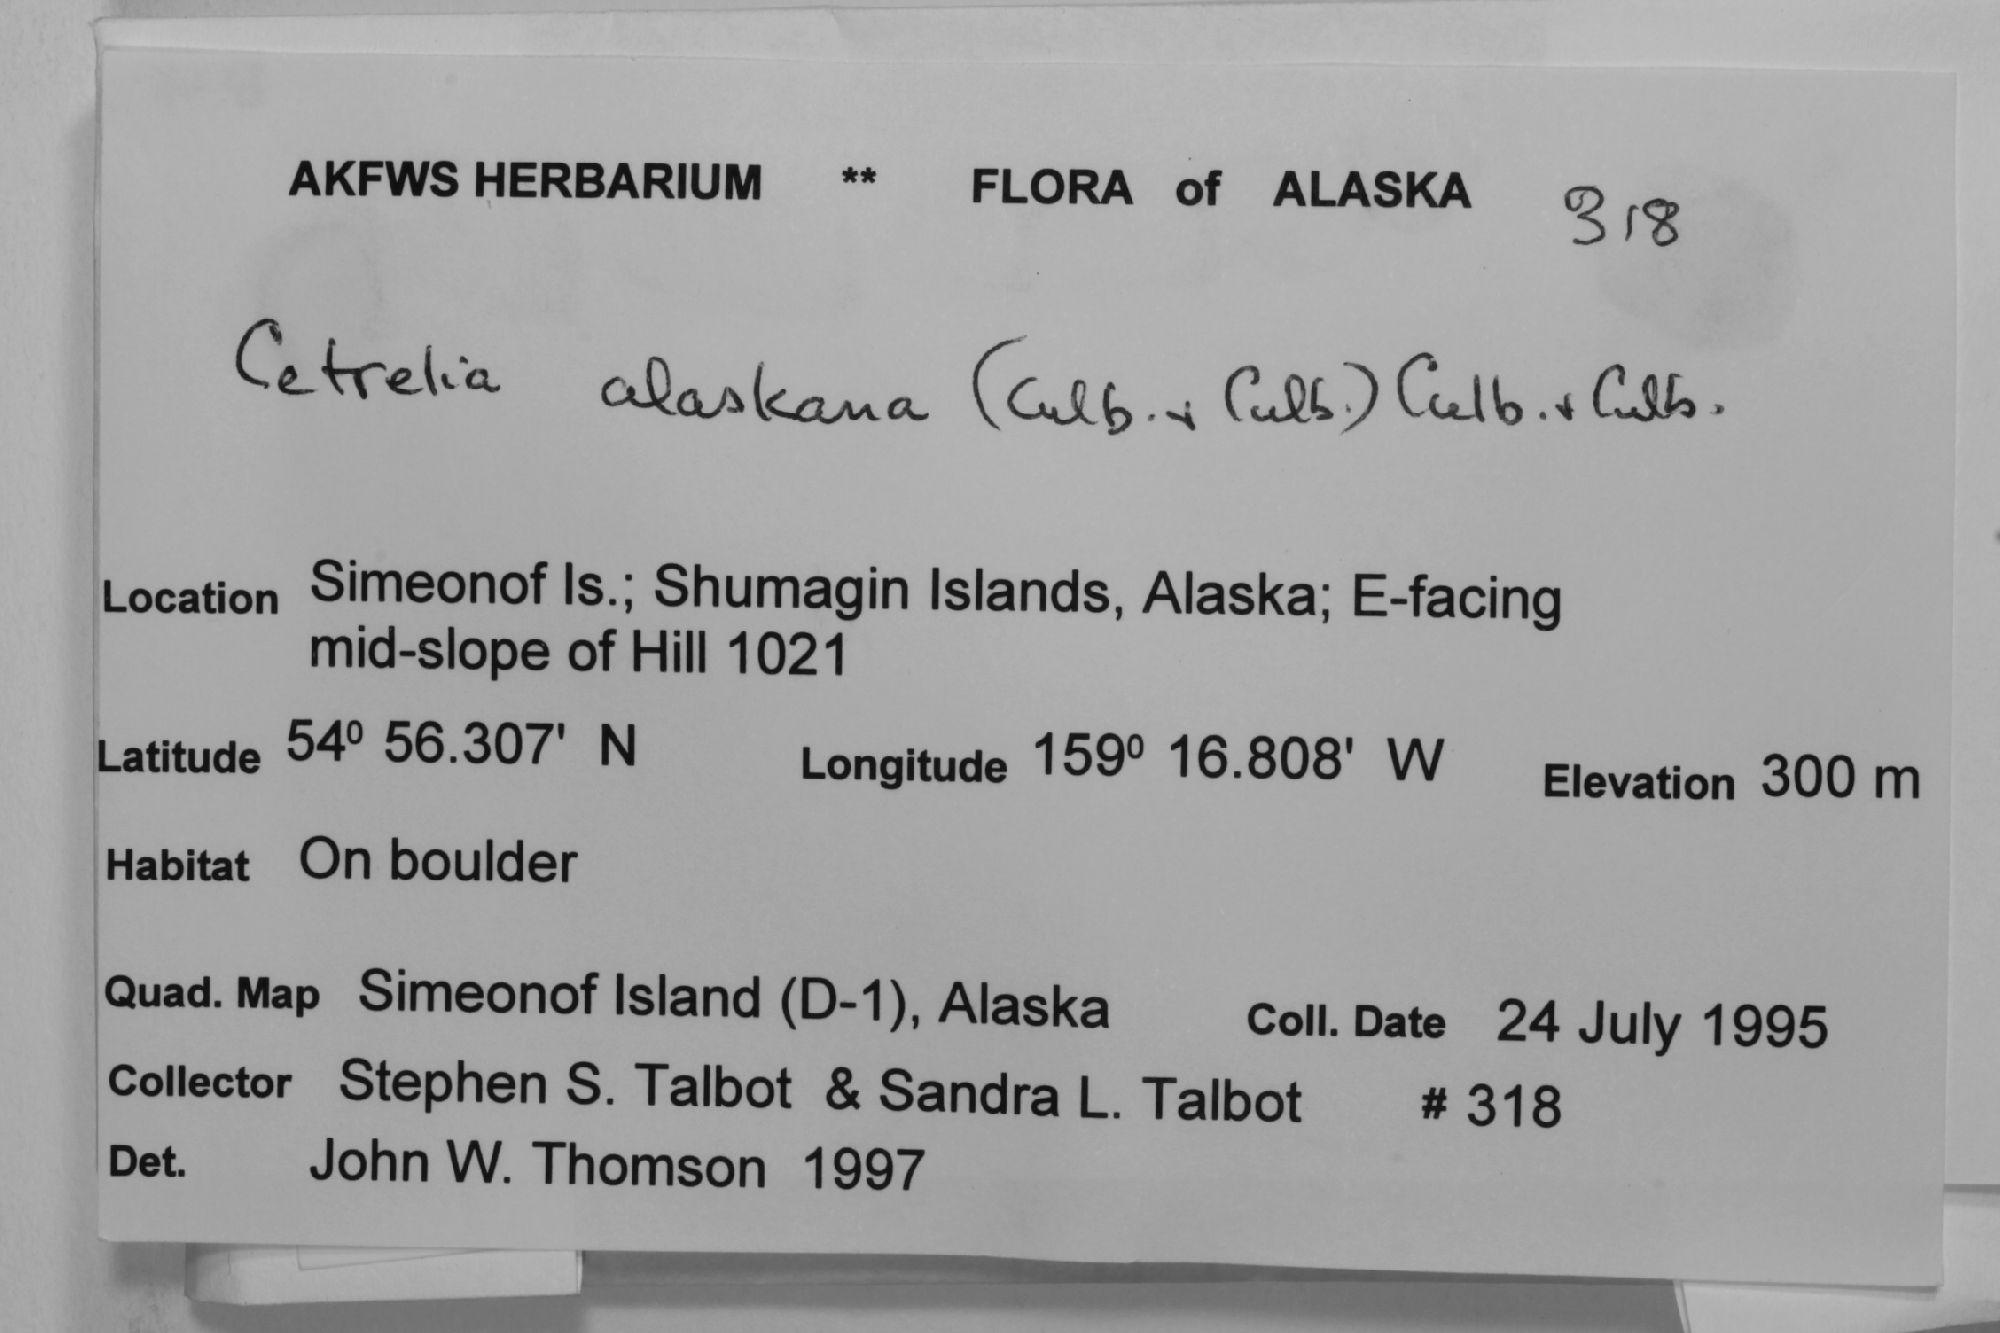 AKFWS HERBARIUM ** FLORA of ALASKA 318
Cetrelia alaskana (Culb. + Culb.) Culb. + Culb.
Location Simeonof Is.; Shumagin Islands, Alaska; E-facing
mid-slope of Hill 1021
Latitude 54⁰ 56.307' N Longitude 159⁰ 16.808' W Elevation 300 m
Habitat On boulder
Quad. Map Simeonof Island (D-1), Alaska Coll. Date 24 July 1995
Collector Stephen S. Talbot & Sandra L. Talbot # 318
Det. John W. Thomson 1997